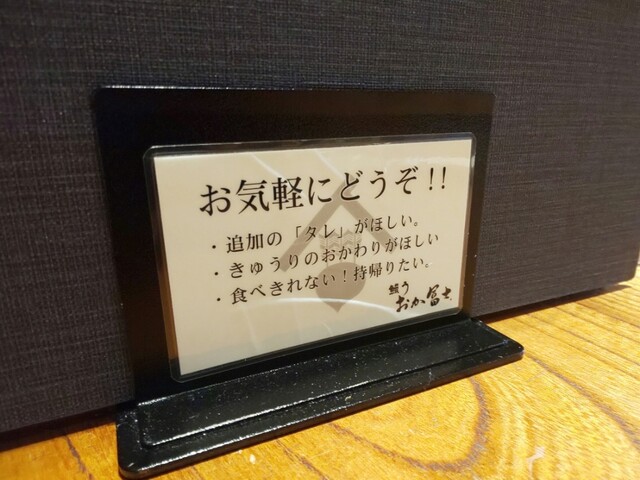 お気軽にどうぞ!!
・追加の「タレ」がほしい。
・きゅうりのおかわりがほしい
・食べきれない！持帰りたい。
おか冨士